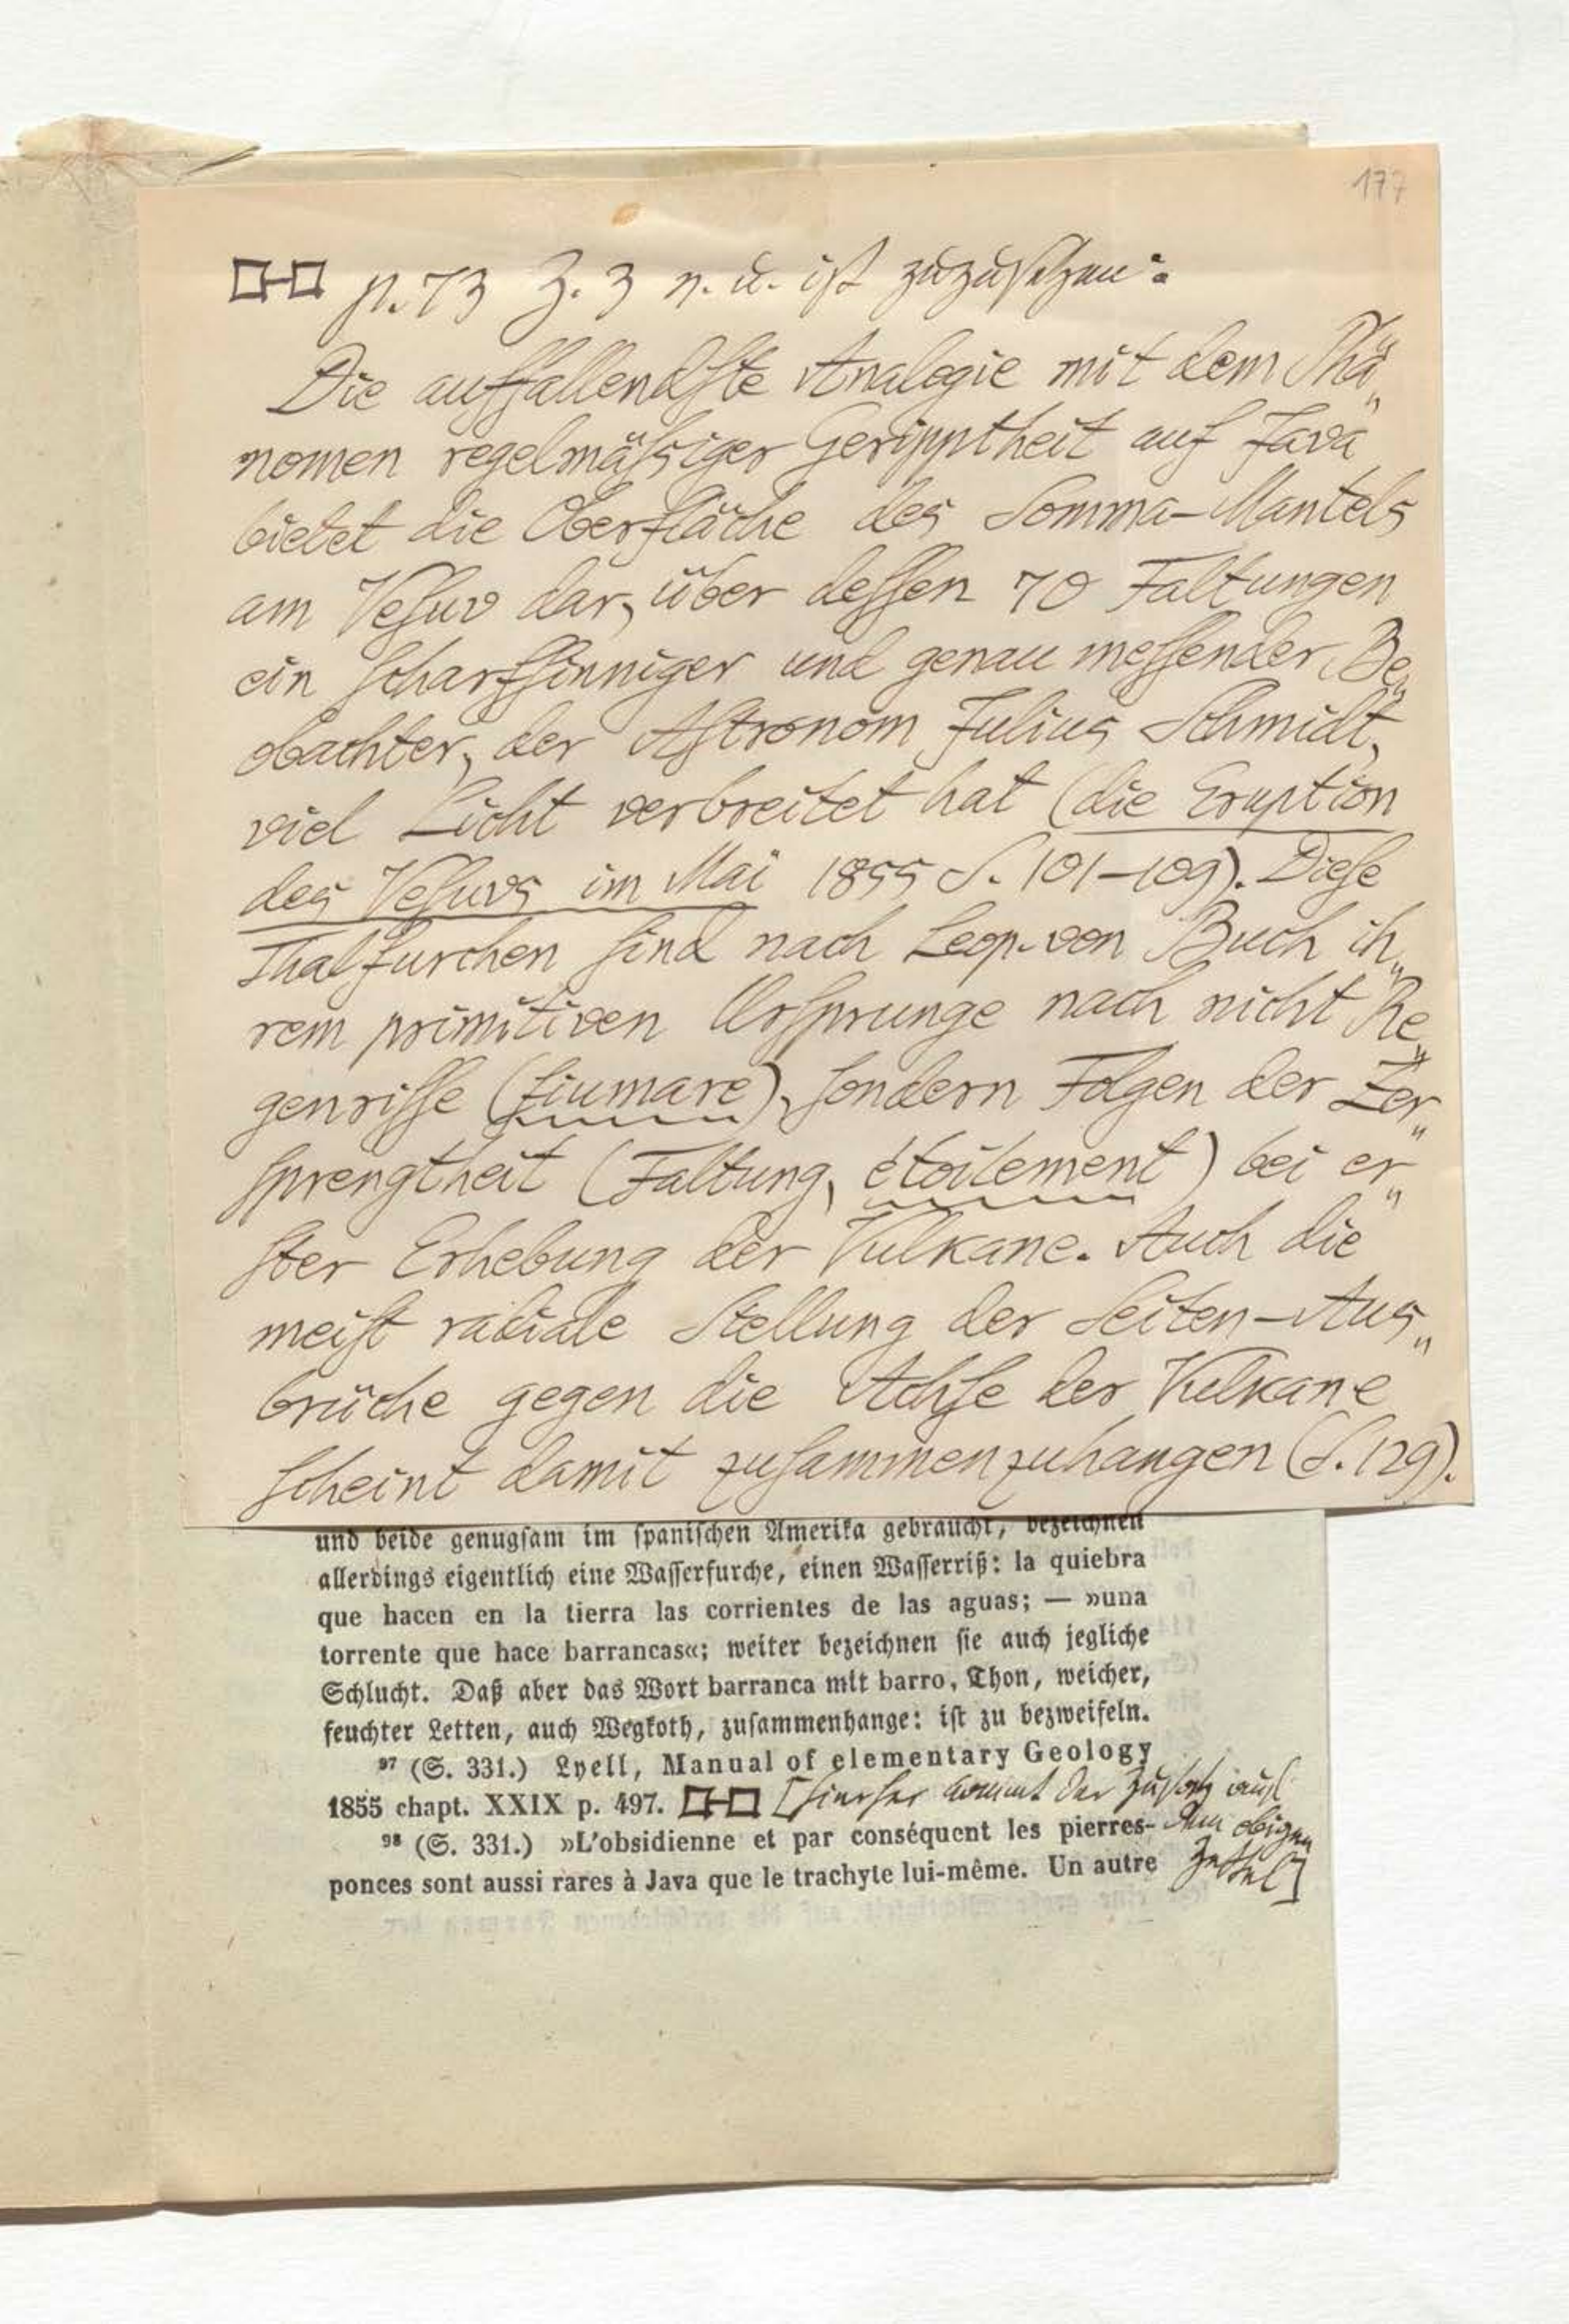 177
p. 73 Z. 3 v. u. ist zuzusetzen:
Die auffallendſte Analogie mit dem Phä„
nomen regelmäſsiger Gerипptheit auf Java
bietet die Oberfläche des Somma-Mantels
am Veſuv dar, über deſſen 70 Faltungen
ein ſcharfſinniger und genau meſſender Be„
obachter, der Aſtronom Julius Schmidt,
viel Licht verbreitet hat (die Eruption
des Veſuvs im Mai 1855 S. 101–109). Dieſe
Thalfurchen ſind nach Leop. von Buch ih„
rem primitiven Urſprunge nach nicht Re„
genriſſe (fiumare), ſondern Folgen der Zer„
ſprengtheit (Faltung, étoilement) bei er„
ſter Erhebung der Vulkane. Auch die
meiſt radiale Stellung der Seiten-Aus„
brüche gegen die Achſe der Vulkane
ſcheint damit zuſammenzuhangen (S. 129).
und beide genugſam im ſpaniſchen Amerika gebraucht, bezeichnen
allerdings eigentlich eine Waſſerfurche, einen Waſſerriß: la quiebra
que hacen en la tierra las corrientes de las aguas; — »una
torrente que hace barrancas«; weiter bezeichnen ſie auch jegliche
Schlucht. Daß aber das Wort barranca mit barro, Thon, weicher,
feuchter Letten, auch Wegkoth, zuſammenhange: iſt zu bezweifeln.
97 (S. 331.) Lyell, Manual of elementary Geology
1855 chapt. XXIX p. 497. [hierher kommt der Zusatz auf
dem obigen
Zettel]
98 (S. 331.) »L'obsidienne et par conséquent les pierres-
ponces sont aussi rares à Java que le trachyte lui-même. Un autre